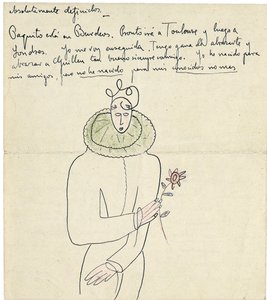 absolutamente definidos. —
Paquito está en Burdeos. Pronto irá a Toulouse y luego a
Londres. Yo me voy enseguida. Tengo gana de abrazarte y
abrazar a tan bueno siempre conmigo. Yo he nacido para
mis amigos, pero no he nacido para mis conocidos no mas